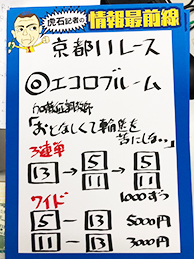 虎石記者の
情報最前線
京都11レース
◎エコロブルーム
「おとなしくて輸送を
苦にしな..」
3連単
13 → 5 11 → 5 11
1000ずつ
ワイド
5 - 13 5000円
11 - 13 3000円